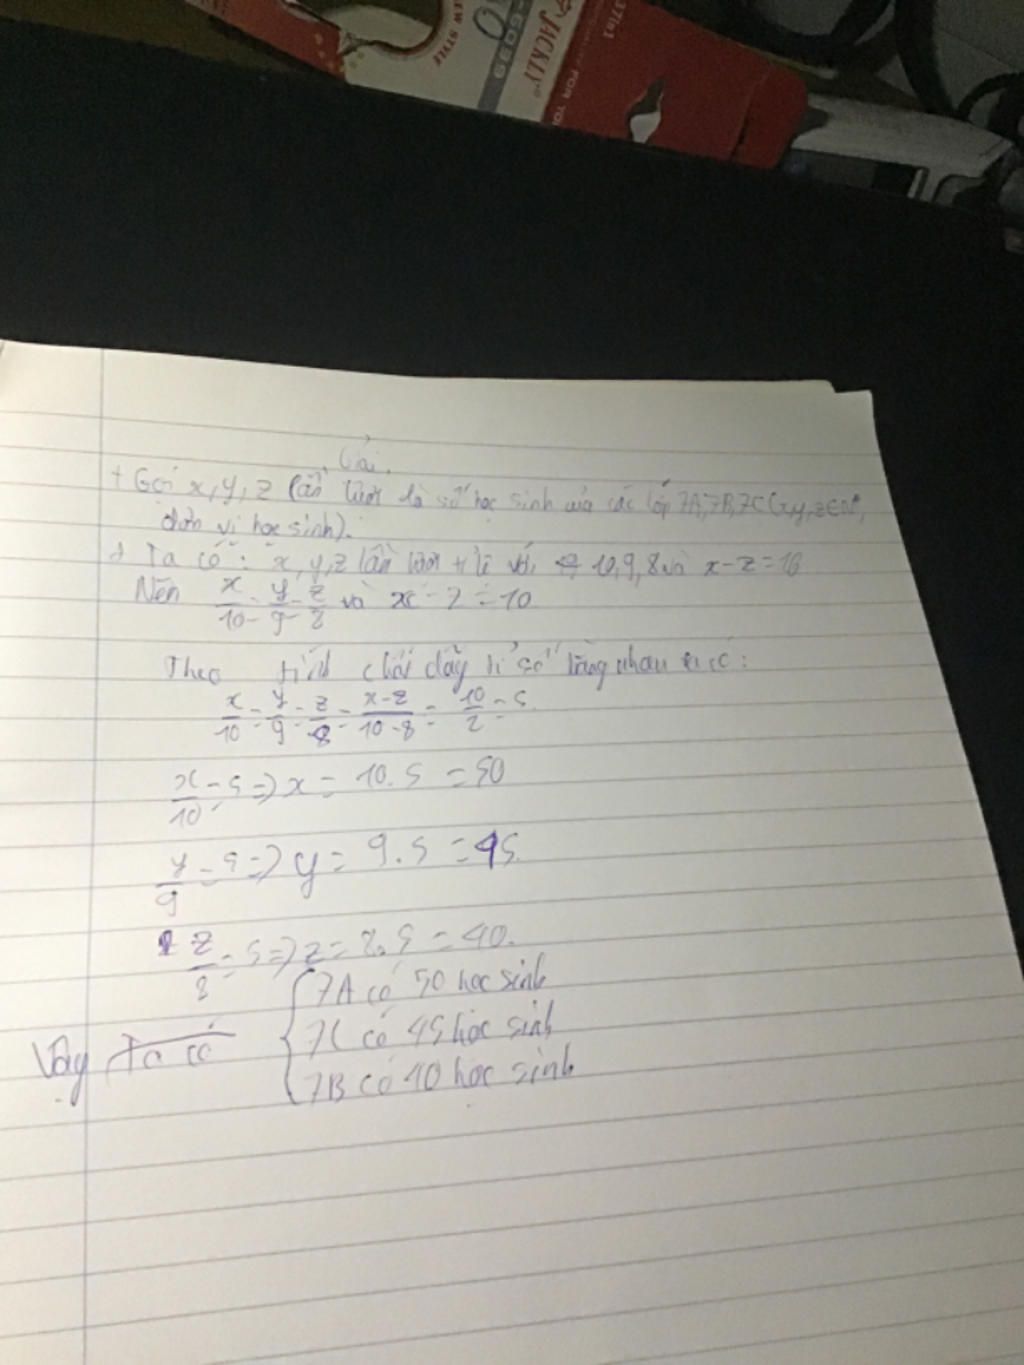 NEW STYLE
6099
JACKLY
FOR YO
37in1
Giải.
+ Gọi x, y, z lần lượt là số học sinh của các lớp 7A, 7B, 7C (x,y,z∈N*,
đơn vị học sinh).
+ Ta có: x, y, z lần lượt tỉ lệ với 10, 9, 8 và x-z=10
Nên x/10 = y/9 = z/8 và x-z=10
Theo tính chất dãy tỉ số bằng nhau ta có:
x/10 = y/9 = z/8 = x-z/10-8 = 10/2 = 5.
x/10 = 5 => x = 10.5 = 50
y/9 = 5 => y = 9.5 = 45.
z/8 = 5 => z = 8.5 = 40.
7A có 50 học sinh
Vậy Ta có { 7C có 45 học sinh
7B có 40 học sinh